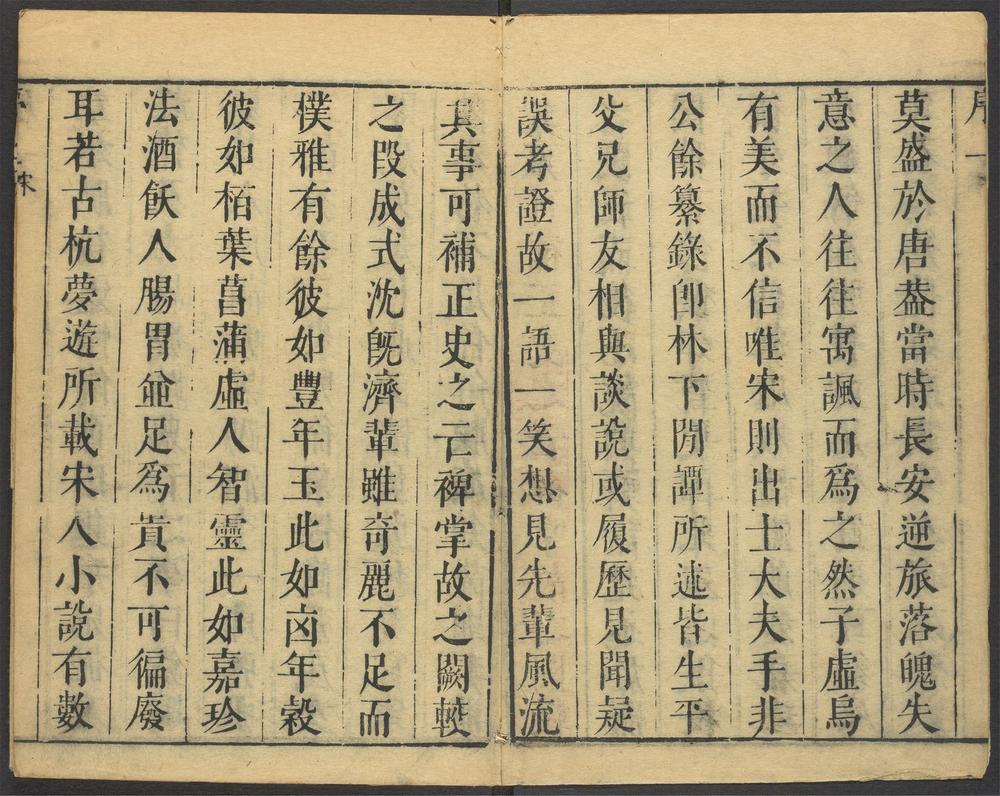 序 一
莫盛於唐葢當時長安逆旅落魄失
意之人往往寓諷而爲之然子虛烏
有美而不信唯宋則出士大夫手非
公餘纂錄卽林下閒譚所述皆生平
父兄師友相與談說或履歷見聞疑
誤考證故一語一笑想見先輩風流
其事可補正史之亡裨掌故之闕較
之段成式沈旣濟輩雖奇麗不足而
樸雅有餘彼如豐年玉此如凶年穀
彼如栢葉菖蒲虛人智靈此如嘉珍
法酒飫人腸胃並足爲貴不可偏廢
耳若古杭夢遊所載宋人小說有數